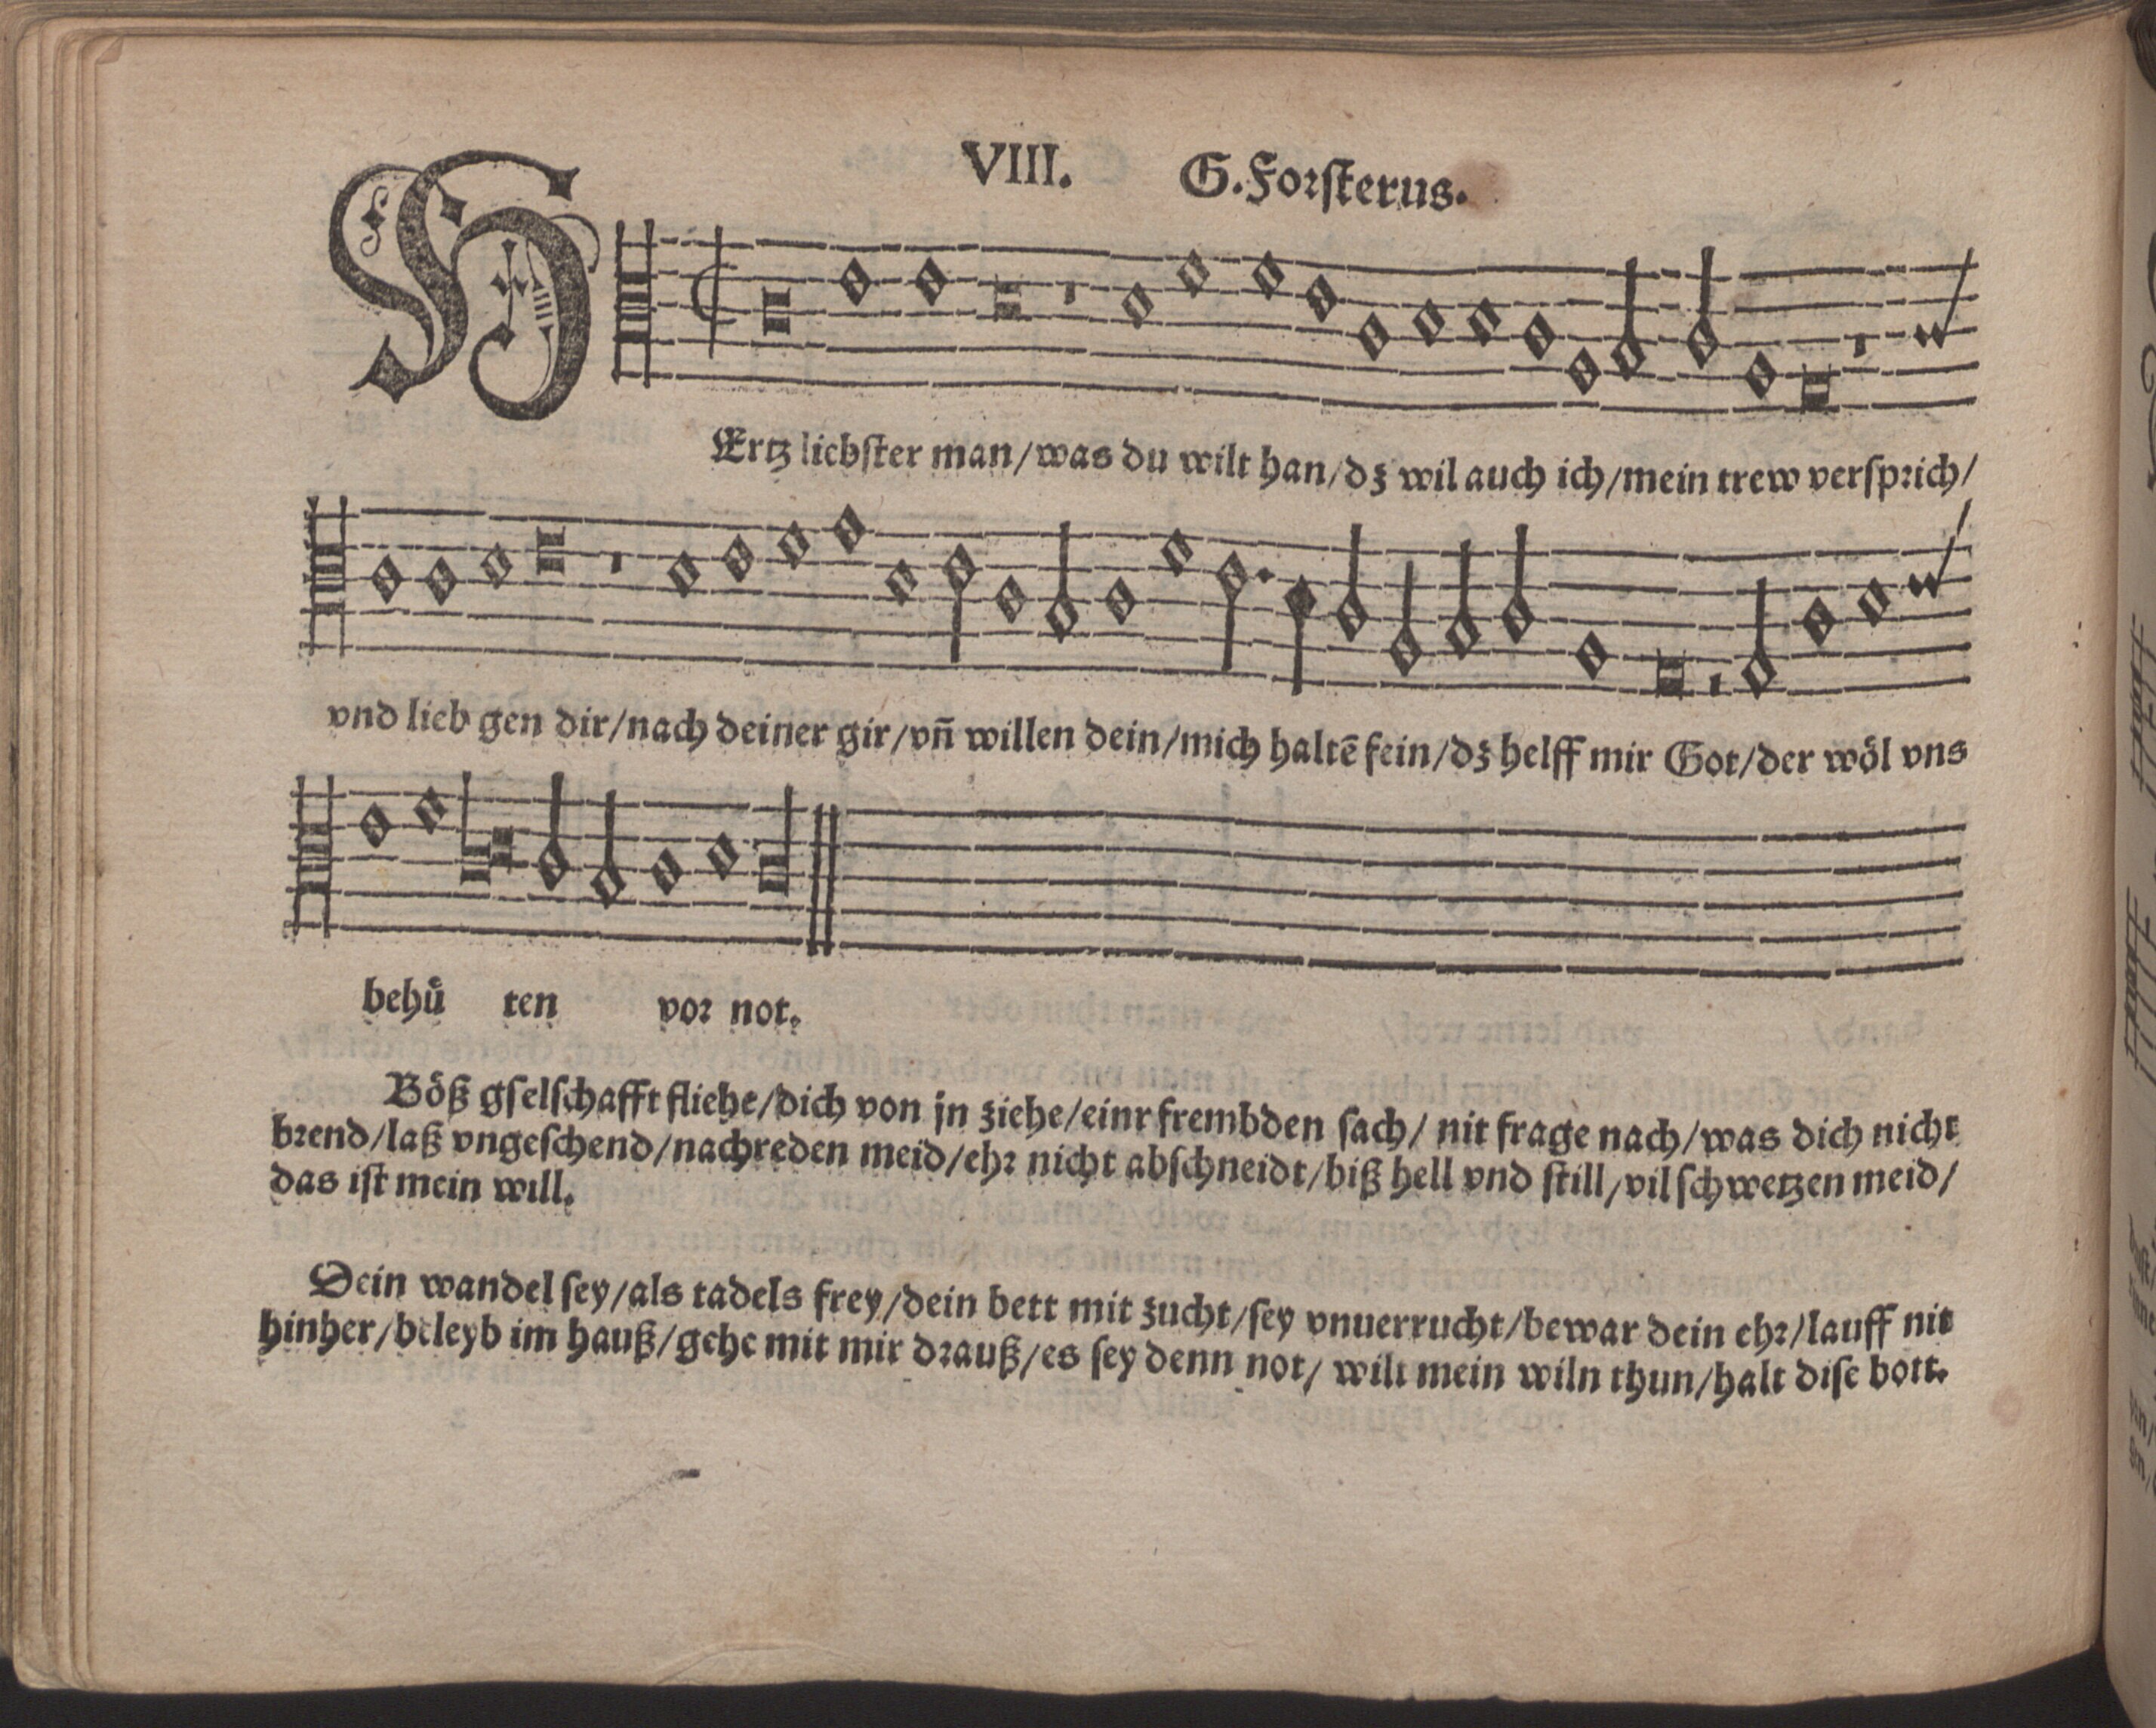 VIII. G. Forſterus.
HErtz liebſter man/was du wilt han/dz wil auch ich/mein trew verſprich/
vnd lieb gen dir/nach deiner gir/vn̄ willen dein/mich haltē fein/dz helff mir Got/der wöl vns
behuͤ ten vor not.
Böß gſelſchafft fliehe/dich von jn ziehe/einr frembden ſach/ nit frage nach/was dich nicht
brend/laß vngeſchend/nachreden meid/ehr nicht abſchneidt/biß hell vnd ſtill/vil ſchwetzen meid/
das iſt mein will.
Dein wandel ſey/als tadels frey/dein bett mit zucht/ſey vnuerrucht/bewar dein ehr/lauff nit
hinher/beleyb im hauß/gehe mit mir drauß/es ſey denn not/ wilt mein wiln thun/halt diſe bott.